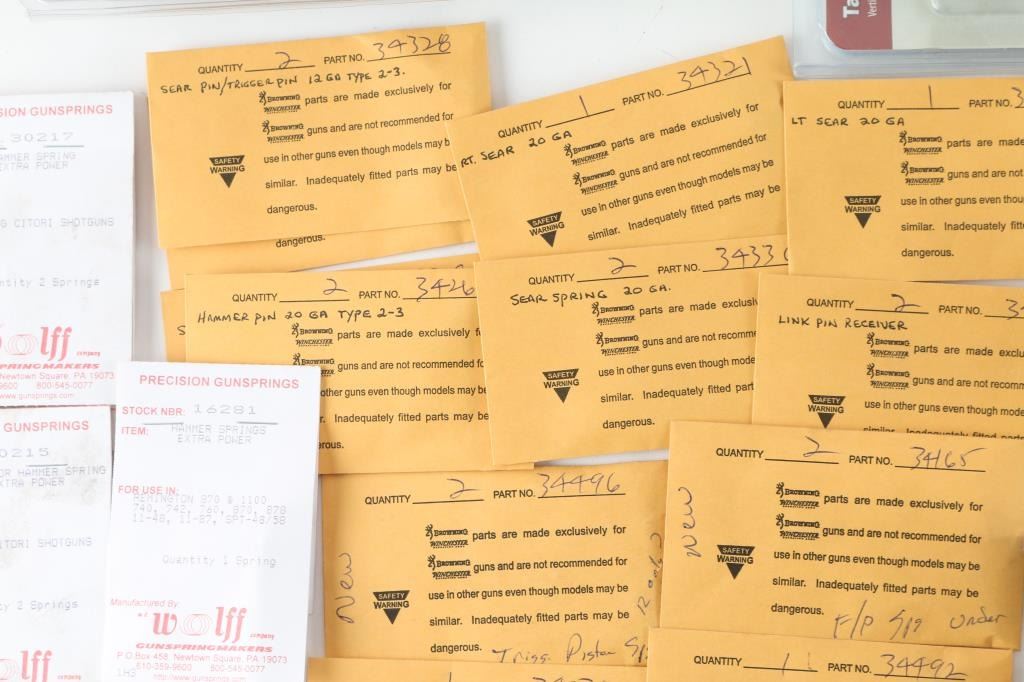 Ta
Verti
QUANTITY 2 PART NO. 34328
SEAR PIN/TRIGGER PIN 12 GA TYPE 2-3.
BROWNING WINCHESTER parts are made exclusively for
BROWNING WINCHESTER guns and are not recommended for
SAFETY WARNING
use in other guns even though models may b
similar. Inadequately fitted parts may be
dangerous.
dangerous.
QUANTITY 1 PART NO. 34321
RT. SEAR 20 GA
BROWNING WINCHESTER parts are made exclusively for
BROWNING WINCHESTER guns and are not recommended for
SAFETY WARNING
use in other guns even though models may be
similar. Inadequately fitted parts may be
dangerous.
QUANTITY 1 PART NO. 3
LT SEAR 20 GA
BROWNING WINCHESTER parts are made
BROWNING WINCHESTER guns and are not
SAFETY WARNING
use in other guns even thou
similar. Inadequately fitt
dangerous.
CISION GUNSPRINGS
30217
HAMMER SPRING
EXTRA POWER
G CITORI SHOTGUNS
ntity 2 Springs
olff
company
PRINGMAKERS
Newtown Square, PA 19073
9600 800-545-0077
www.gunsprings.com
S
QUANTITY 2 PART NO. 3426
HAMMER PIN 20 GA TYPE 2-3
BROWNING WINCHESTER parts are made exclusively f
BROWNING WINCHESTER guns and are not recommende
use in other guns even though models may be
similar. Inadequately fitted parts may be
dangerous.
QUANTITY 2 PART NO. 3433
SEAR SPRING 20 GA.
BROWNING WINCHESTER parts are made exclusiv
BROWNING WINCHESTER guns and are not recomme
SAFETY WARNING
use in other guns even though mode
similar. Inadequately fitted part
dangerous.
QUANTITY 2 PART NO. 3
LINK PIN RECEIVER
BROWNING WINCHESTER parts are made exclus
BROWNING WINCHESTER guns and are not recomm
SAFETY WARNING
use in other guns even though mode
similar. Inadequately fitted pa
GUNSPRINGS
0215
OR HAMMER SPRING
EXTRA POWER
ITORI SHOTGUNS
y 2 Springs
lff
company
PRECISION GUNSPRINGS
STOCK NBR: 16281
ITEM: HAMMER SPRINGS
EXTRA POWER
FOR USE IN:
REMINGTON 870 & 1100
740, 742, 760, 870, 878
11-48, 11-87, SPT-48/58
Quantity 1 Spring
Manufactured By:
W.C. wolff company
GUNSPRINGMAKERS
P O Box 458, Newtown Square, PA 19073
610-359-9600 800-545-0077
1H3 http://www.gunsprings.com
QUANTITY 2 PART NO. 34496
BROWNING WINCHESTER parts are made exclusively for
BROWNING WINCHESTER guns and are not recommended for
New
SAFETY WARNING
use in other guns even though models may be
similar. Inadequately fitted parts may be
dangerous.
Trigg. Piston
QUANTITY 2 PART NO. 34165
BROWNING WINCHESTER parts are made exclusively for
BROWNING WINCHESTER guns and are not recommended for
New
SAFETY WARNING
use in other guns even though models may be
similar. Inadequately fitted parts may be
dangerous.
F/P Spg Under
QUANTITY 1 PART NO. 34492